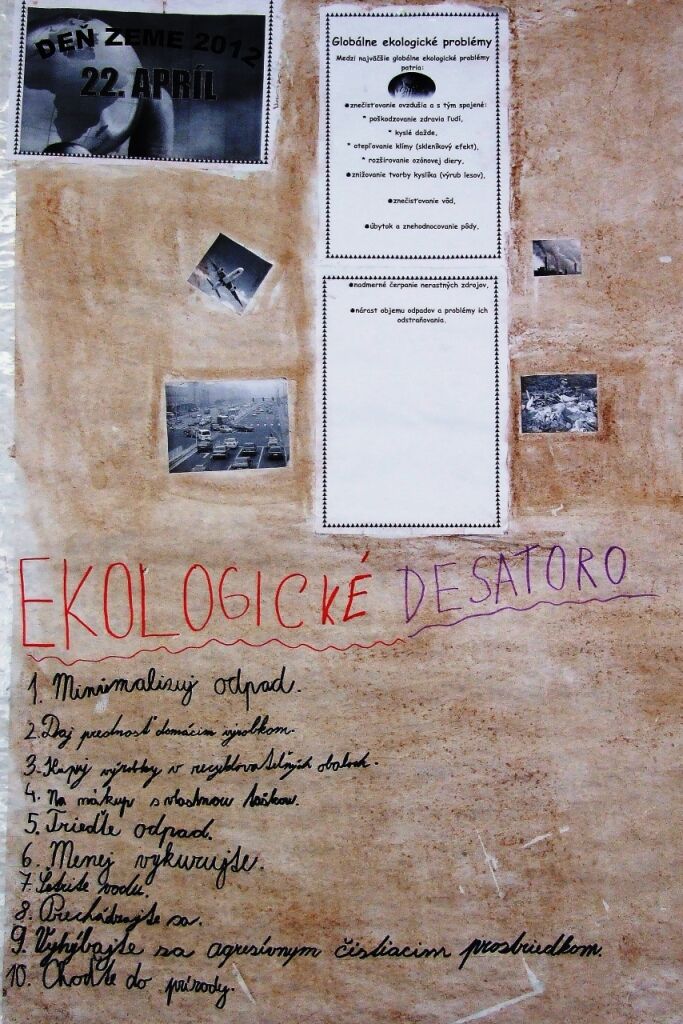 DEŇ ZEME 2012
22. APRÍL
Globálne ekologické problémy
Medzi najväčšie globálne ekologické problémy
patria:
●znečisťovanie ovzdušia a s tým spojené:
* poškodzovanie zdravia ľudí,
* kyslé dažde,
* otepľovanie klímy (skleníkový efekt),
* rozširovanie ozónovej diery,
●znižovanie tvorby kyslíka (výrub lesov),
●znečisťovanie vôd,
●úbytok a znehodnocovanie pôdy,
●nadmerné čerpanie nerastných zdrojov,
●nárast objemu odpadov a problémy ich
odstraňovania.
EKOLOGICKÉ DESATORO
1. Minimalizuj odpad.
2. Daj prednosť domácim výrobkom.
3. Kupuj výrobky v recyklovateľných obaloch.
4. Na nákup s vlastnou taškou.
5. Trieďte odpad.
6. Menej vykurujte.
7. Šetrite vodu.
8. Prechádzajte sa.
9. Vyhýbajte sa agresívnym čistiacim prostriedkom.
10. Choďte do prírody.